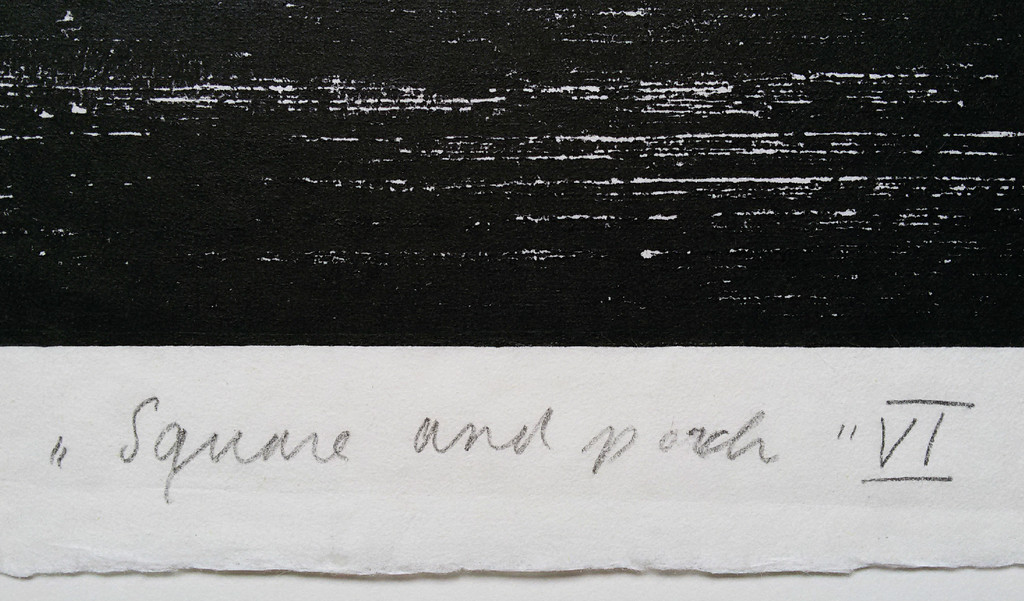 „Square and porch" VI